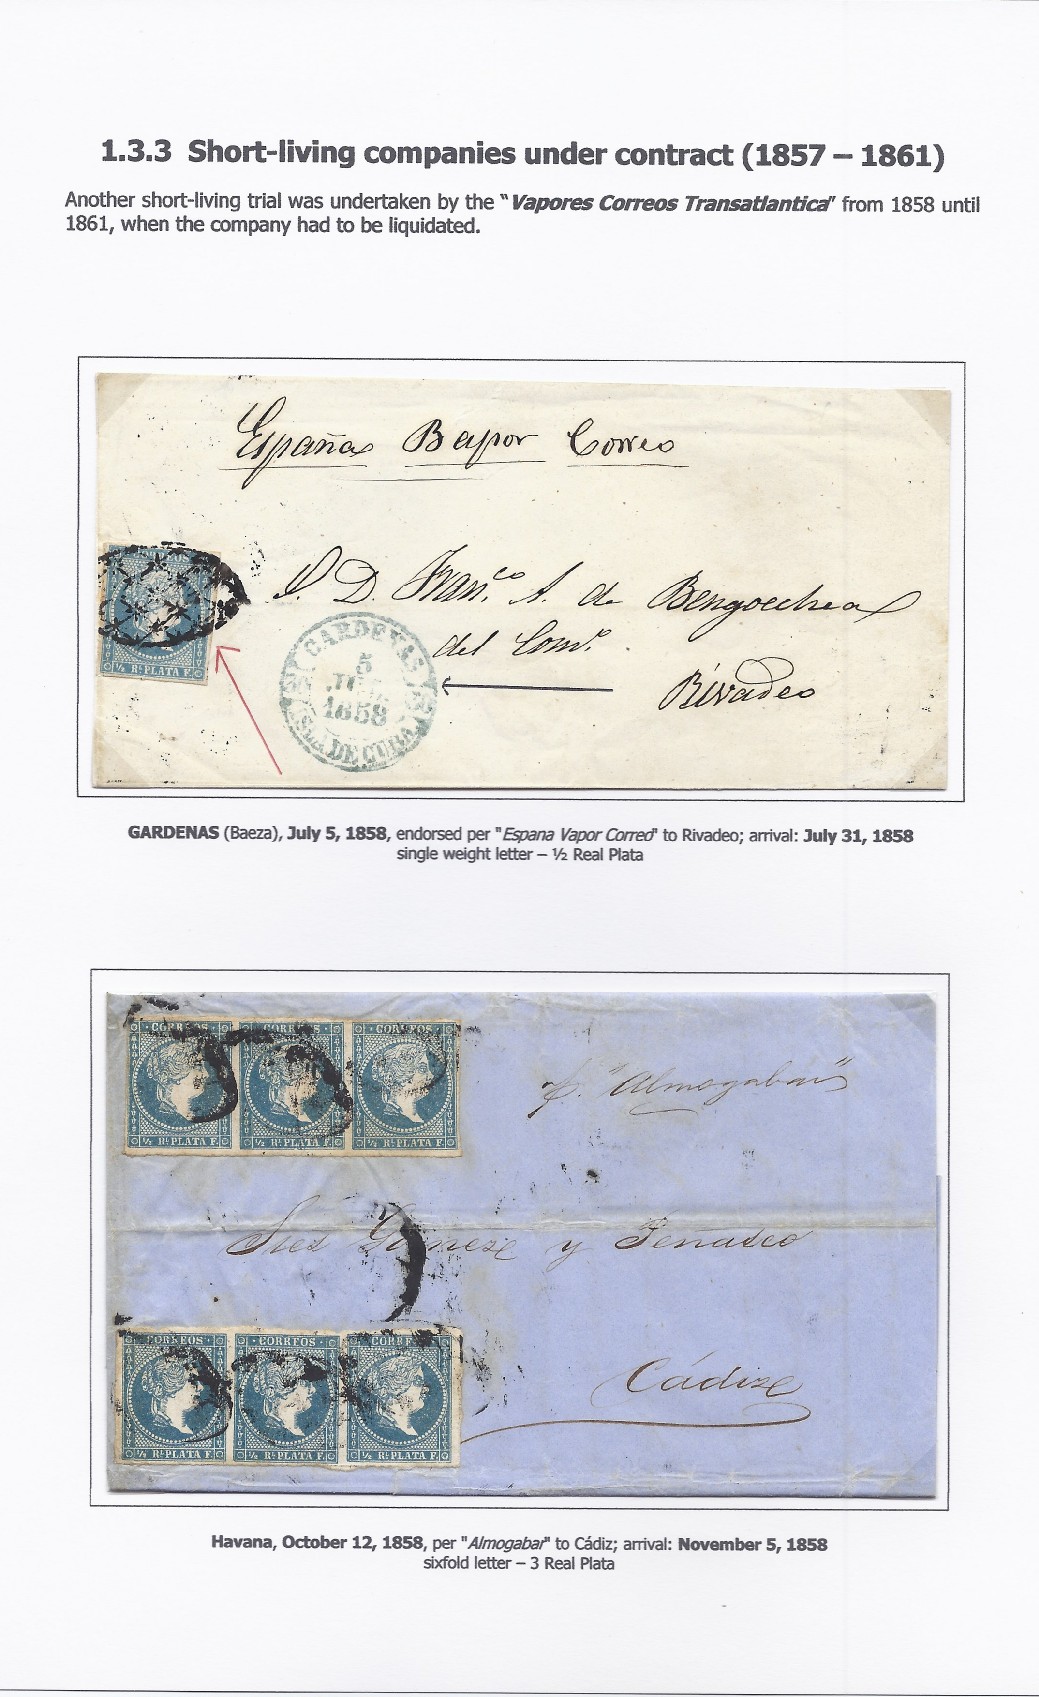 1.3.3 Short-living companies under contract (1857 – 1861)
Another short-living trial was undertaken by the "Vapores Correos Transatlantica" from 1858 until
1861, when the company had to be liquidated.
España Bapor Correo
S. D. Franco. A. de Bengoechea
del Como.
Rivadeo
½ Rl. PLATA F.
CARDENAS
5
1858
ISLA DE CUBA
GARDENAS (Baeza), July 5, 1858, endorsed per "Espana Vapor Correo" to Rivadeo; arrival: July 31, 1858
single weight letter – ½ Real Plata
CORREOS CORREOS CORREOS
½ Rl. PLATA F. ½ Rl. PLATA F. ½ Rl. PLATA F.
p. "Almogabar"
Sres Gomeze y Penasco
CORREOS CORREOS CORREOS
½ Rl. PLATA F. ½ Rl. PLATA F. ½ Rl. PLATA F.
Cádize
Havana, October 12, 1858, per "Almogabar" to Cádiz; arrival: November 5, 1858
sixfold letter – 3 Real Plata